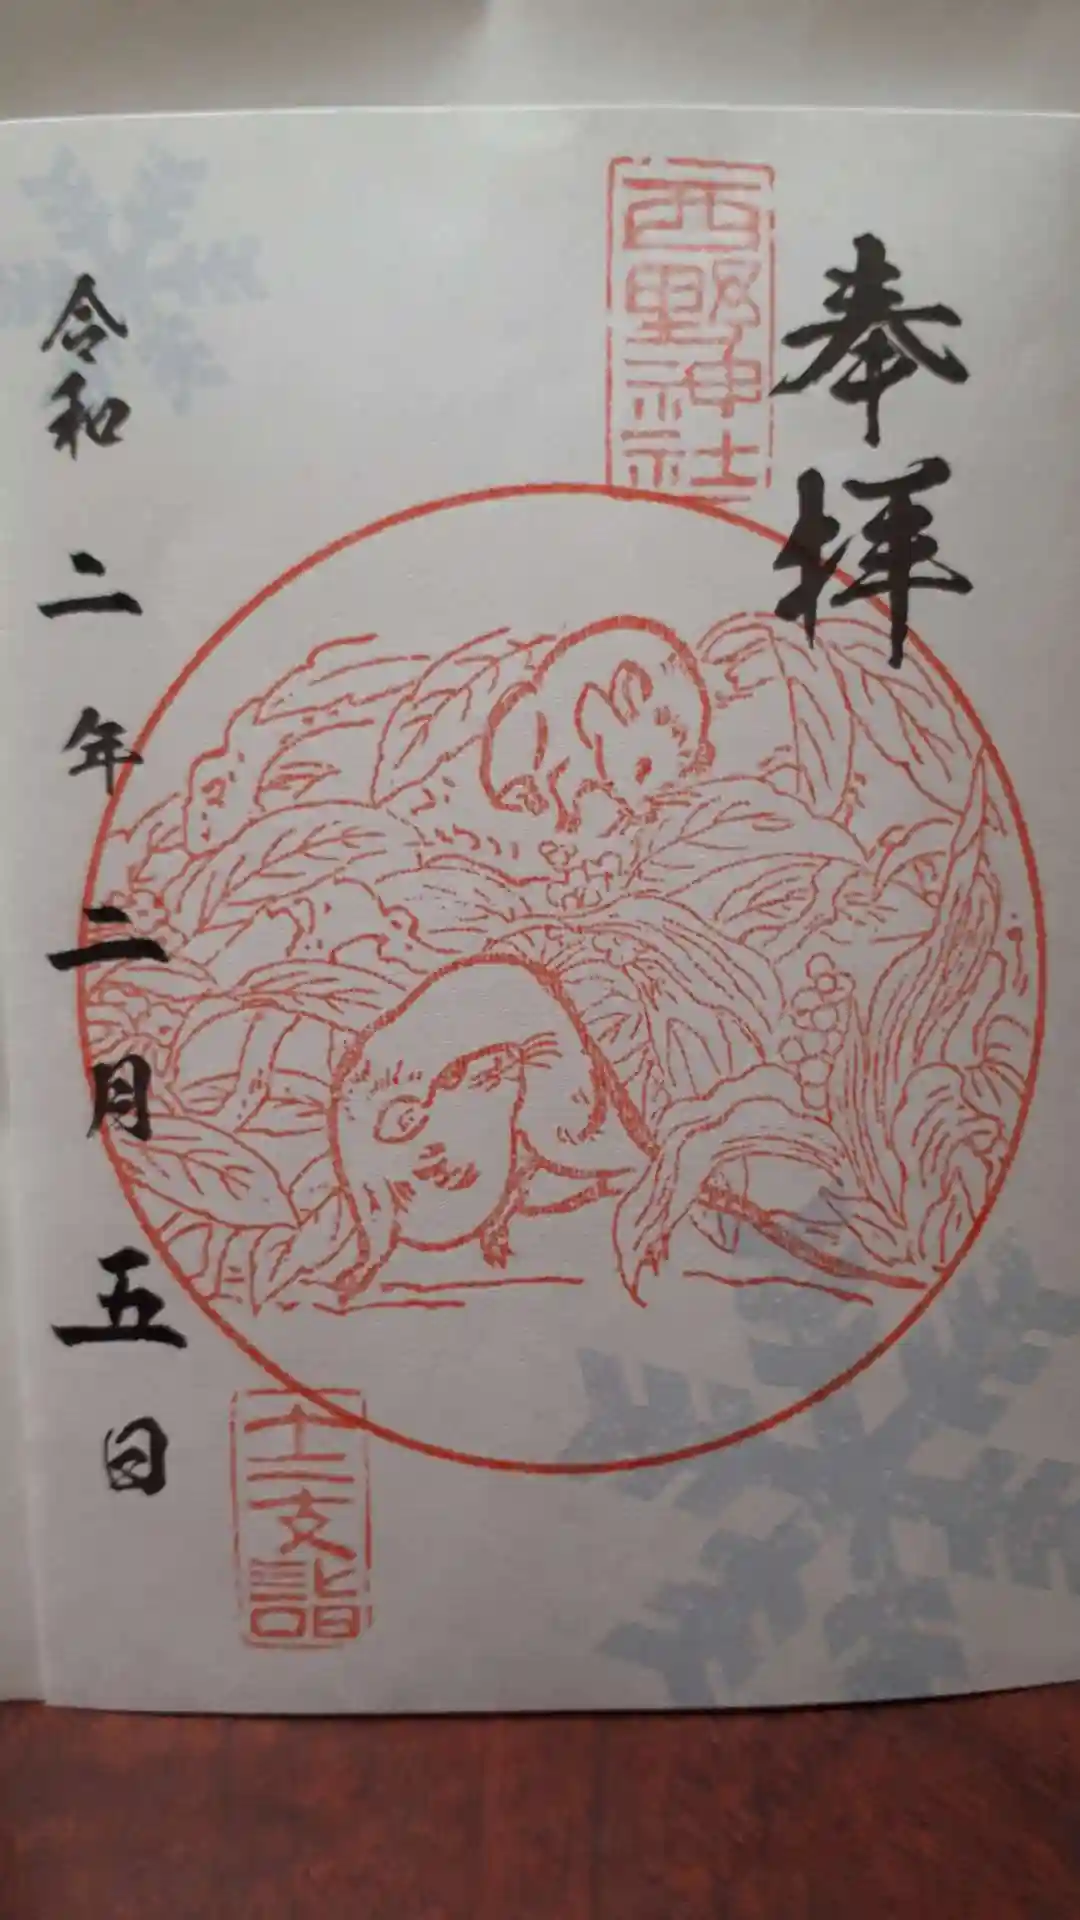 奉拝
西野神社
十二支詣
令和二年二月五日